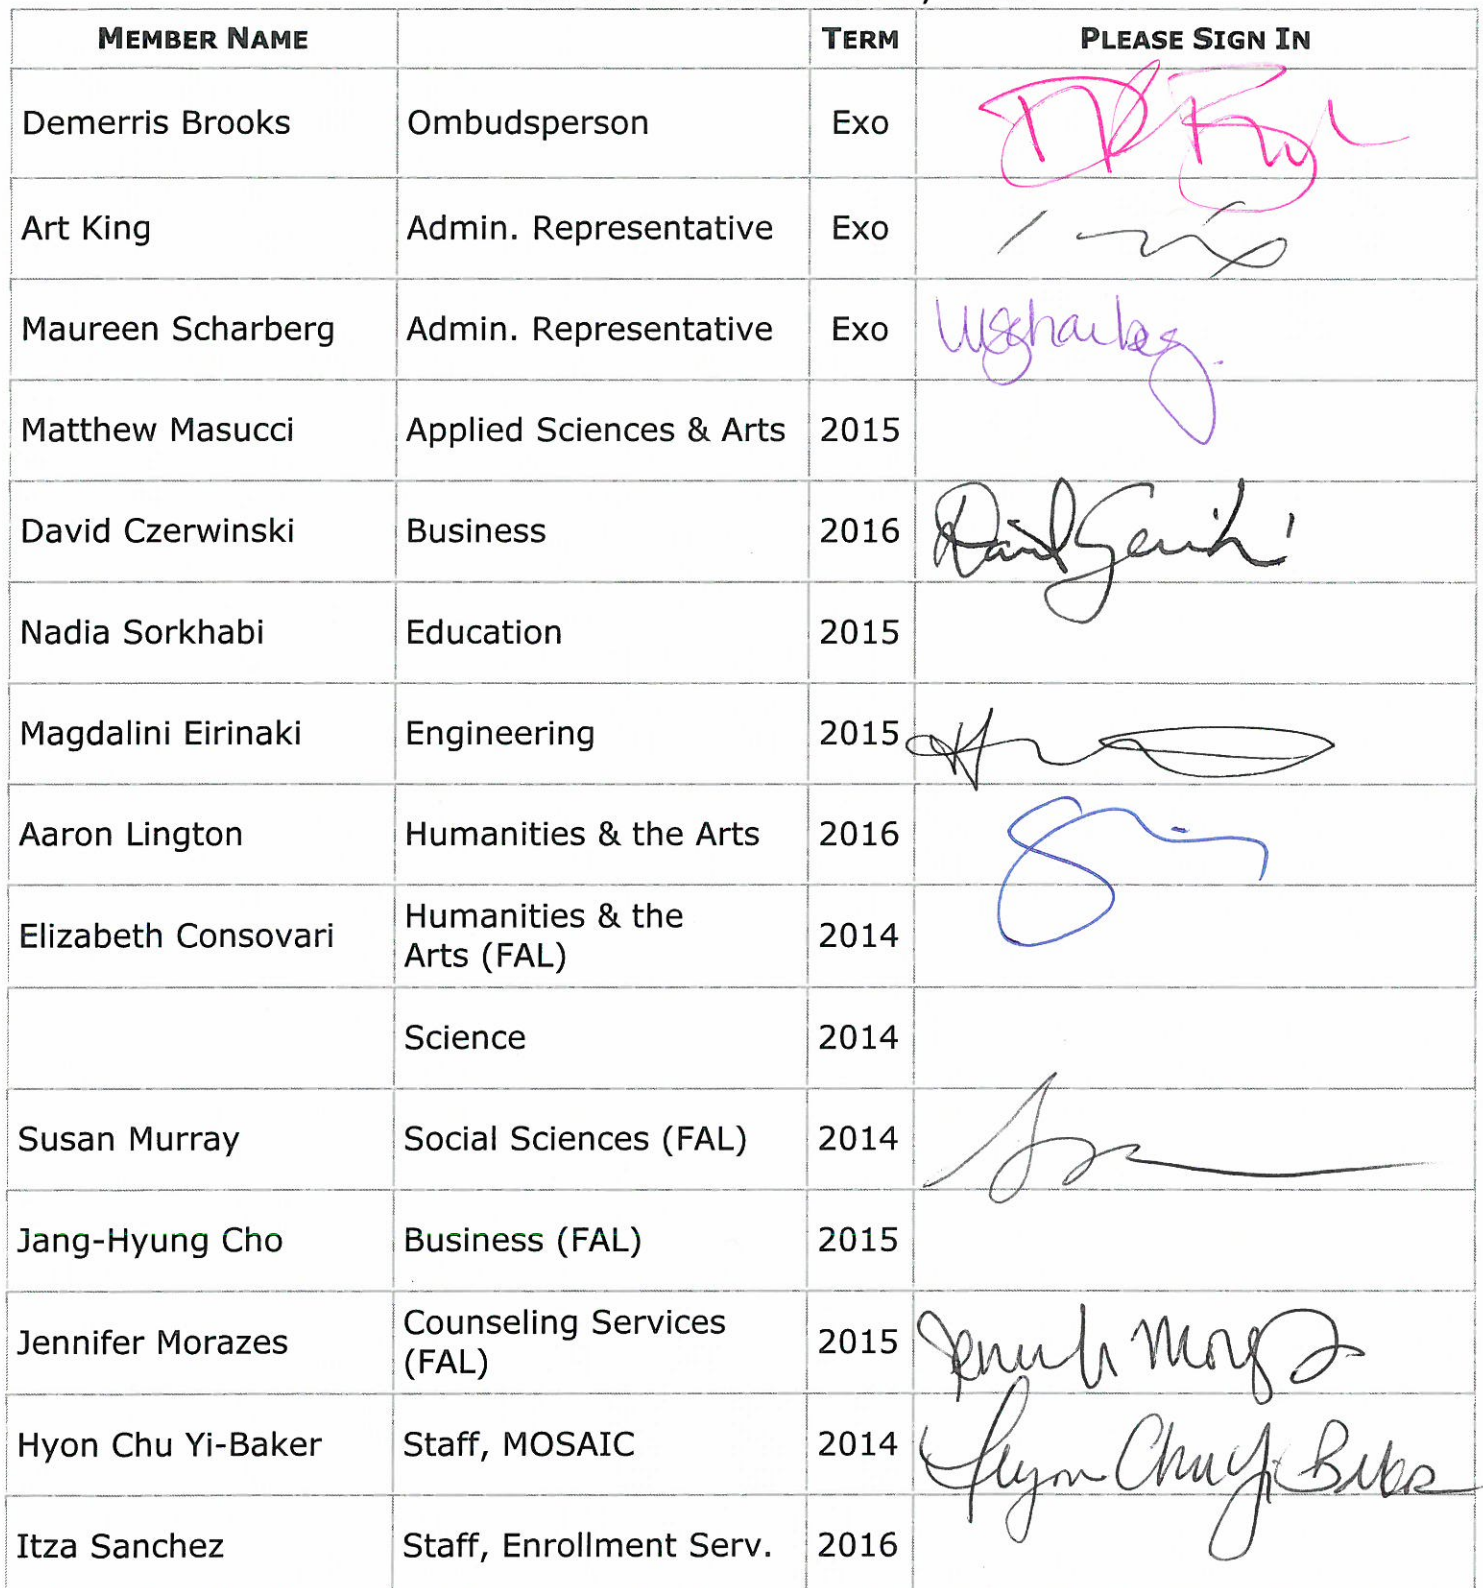 MEMBER NAME TERM PLEASE SIGN IN
Demerris Brooks Ombudsperson Exo
Art King Admin. Representative Exo
Maureen Scharberg Admin. Representative Exo
Matthew Masucci Applied Sciences & Arts 2015
David Czerwinski Business 2016
Nadia Sorkhabi Education 2015
Magdalini Eirinaki Engineering 2015
Aaron Lington Humanities & the Arts 2016
Elizabeth Consovari Humanities & the
Arts (FAL) 2014
Science 2014
Susan Murray Social Sciences (FAL) 2014
Jang-Hyung Cho Business (FAL) 2015
Jennifer Morazes Counseling Services
(FAL) 2015
Hyon Chu Yi-Baker Staff, MOSAIC 2014 Hyon Chu Yi-Baker
Itza Sanchez Staff, Enrollment Serv. 2016